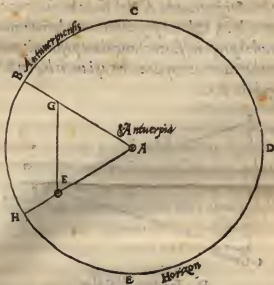 C
B
Antuerpiensis
G
Antuerpia
A
D
E
H
E
Horizon